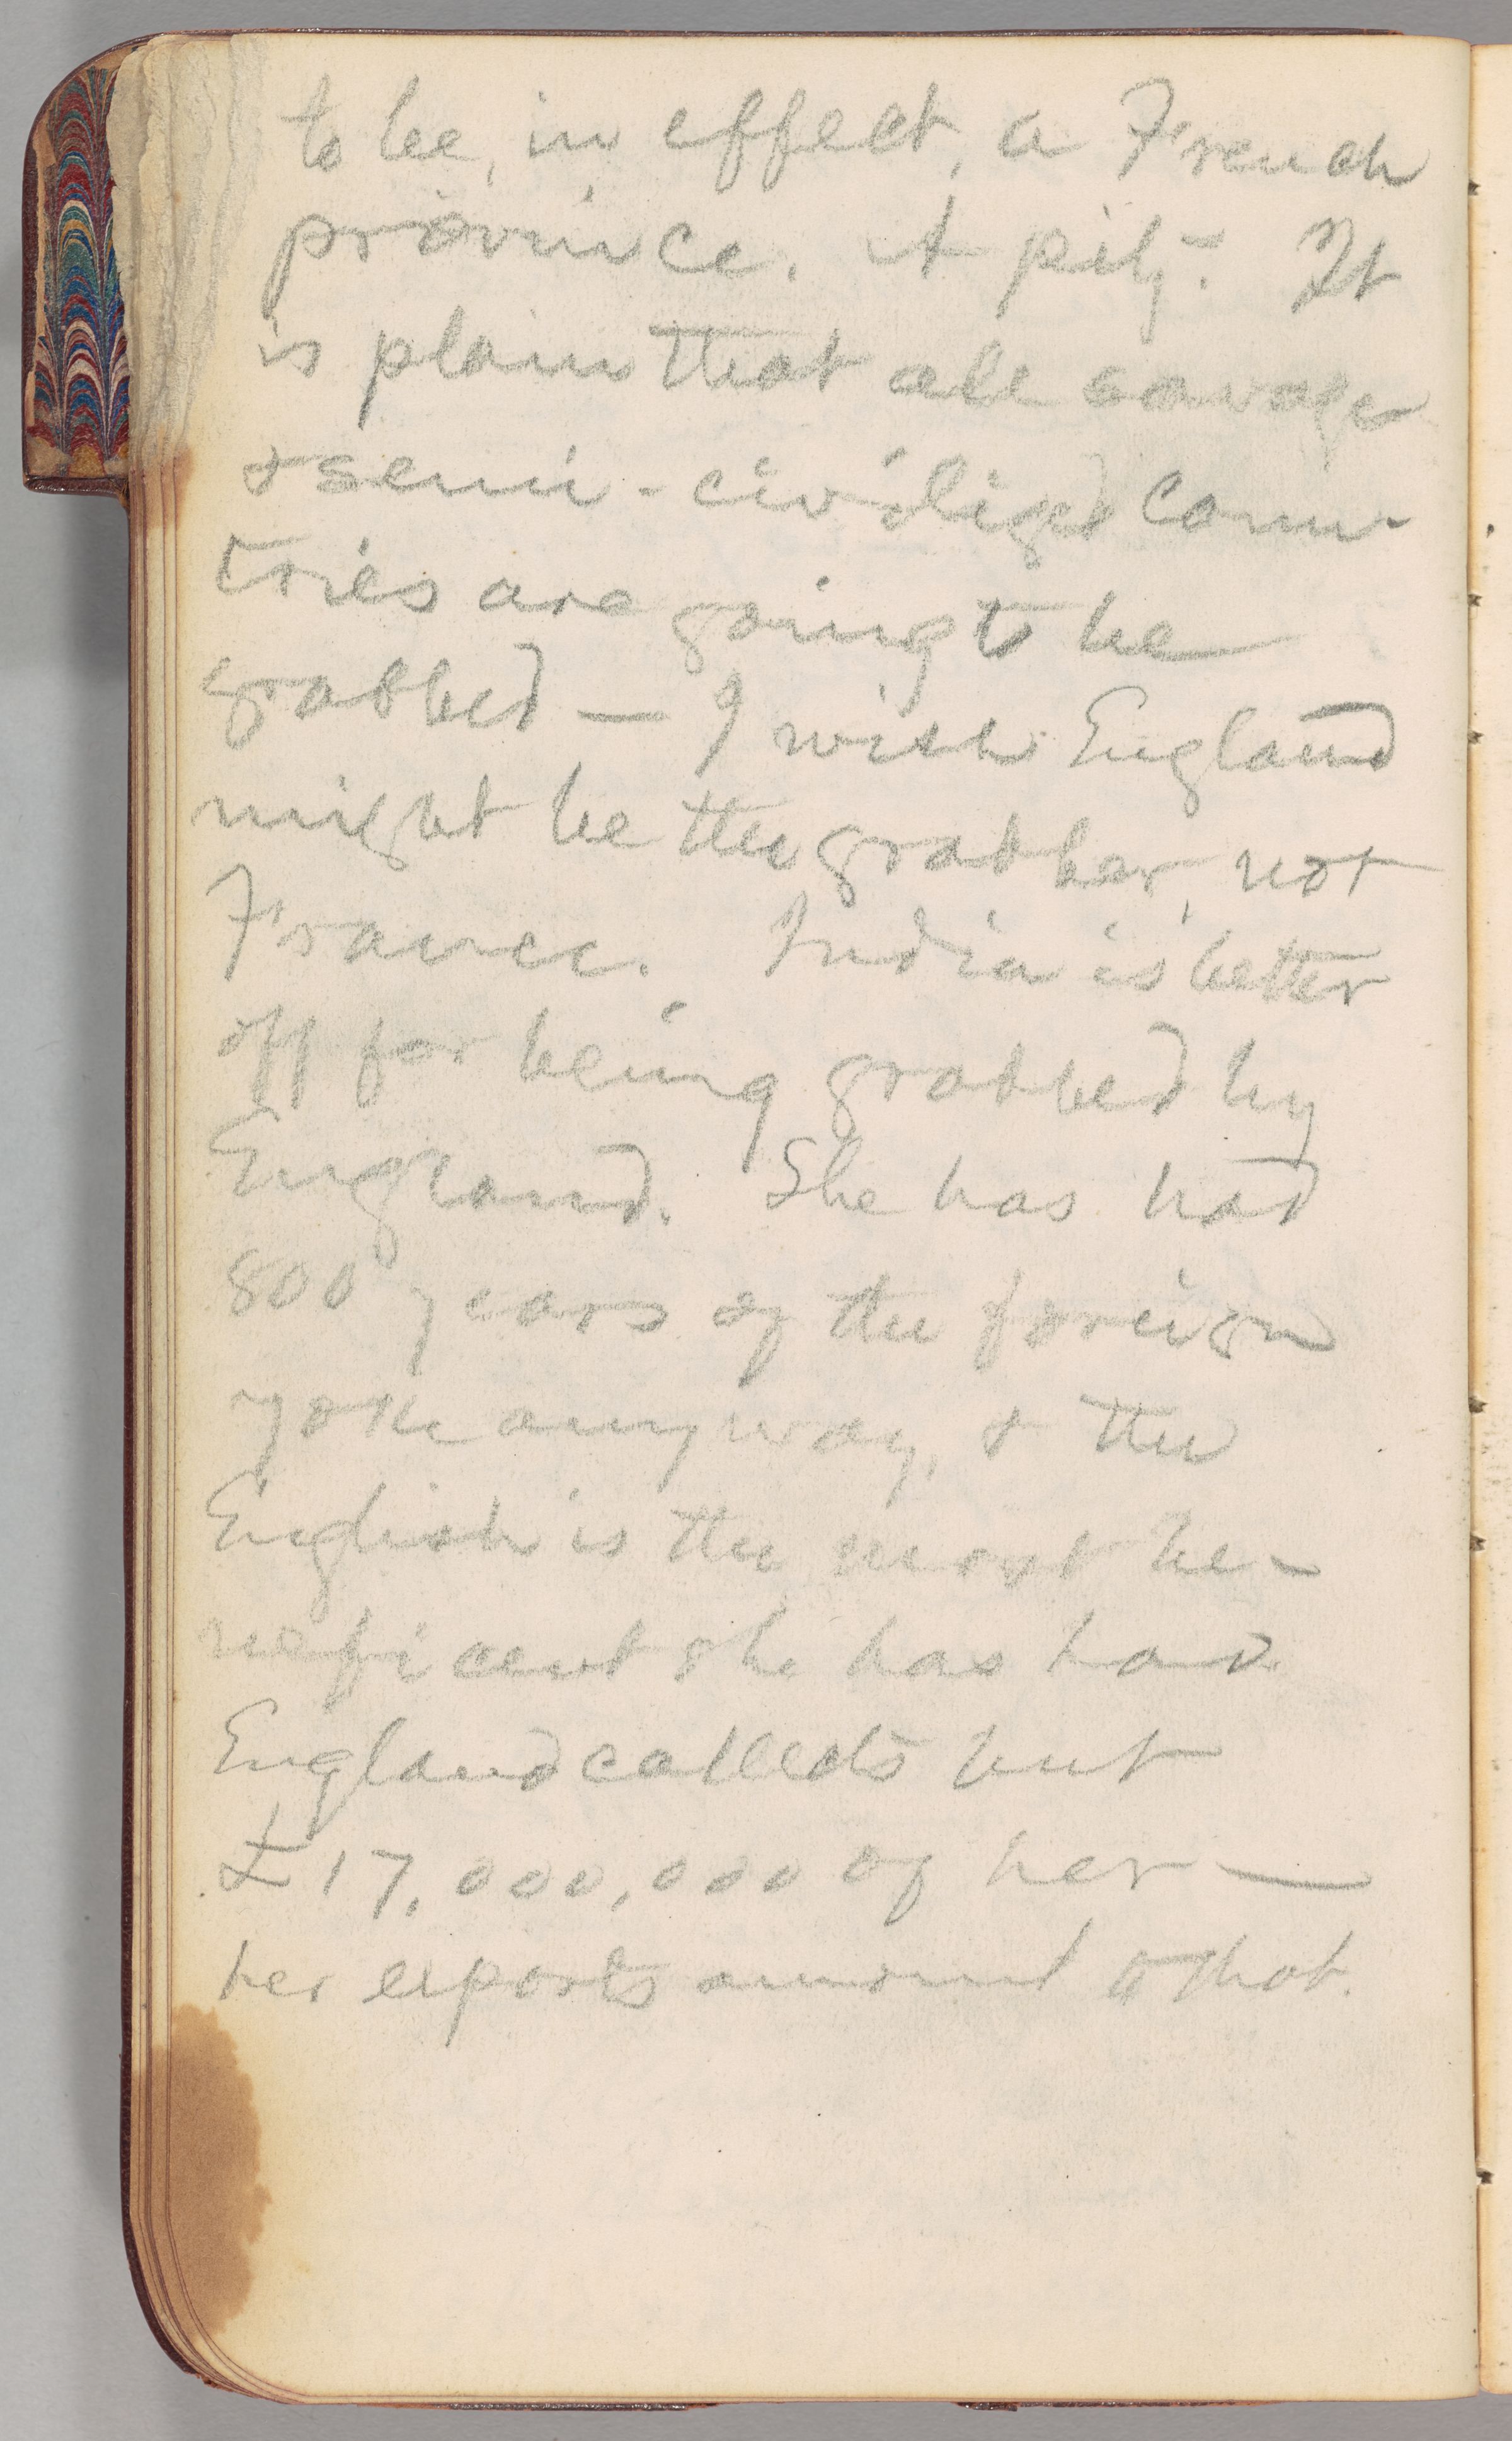 to be, in effect, a French
province. A pity. It
is plain that all savage
& semi-civilized coun-
tries are going to be
grabbed — I wish England
might be the grabber, not
France. India is better
off for being grabbed by
England. She has had
800 years of the foreign
yoke anyway, & the
English is the most be-
neficent she has had.
England collects but
£17,000,000 of her —
her exports amount to that.